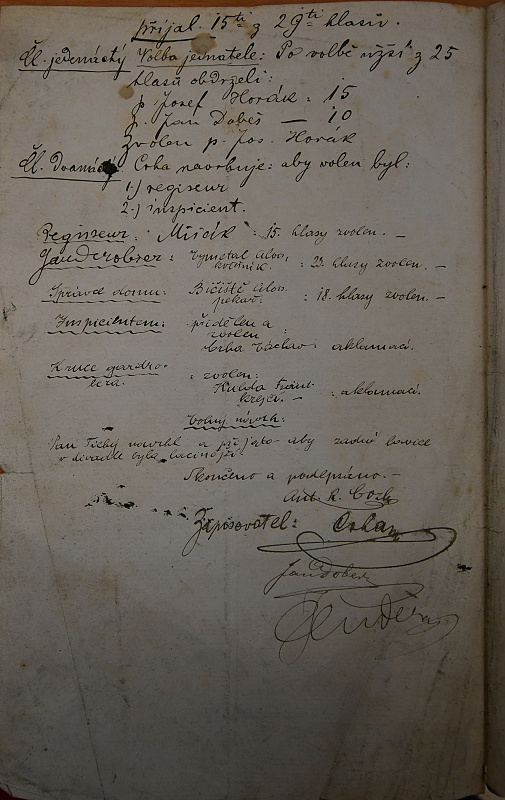 přijal. 15ti z 29ti hlasův.
Čl. jedenáctý Volba jednatele: Po volbě užší z 25
hlasů obdrželi:
p. Josef Horák : 15
p. Jan Dobeš — 10
Zvolen p. Jos. Horák
Čl. dvanáctý Crha navrhuje: aby volen byl:
1.) regiseur
2.) inspicient.
Regisseur: Mišák : 15. hlasy zvolen. —
: Vymětal Alois
: 23. hlasy zvolen. —
Správce domu: Alois
pekař. : 18. hlasy zvolen. —
Inspicientem: přidělen a
zvolen :
Crha Václav: aklamací.
: zvolen:
krejčí. — : aklamací.
Volný návrh:
Pan Tichý navrhl a přijato aby zadní lavice
v divadle byla lacinější.
Skončeno a podepsáno. —
Ant. R.
Zapisovatel: Crha
Jan Dobeš